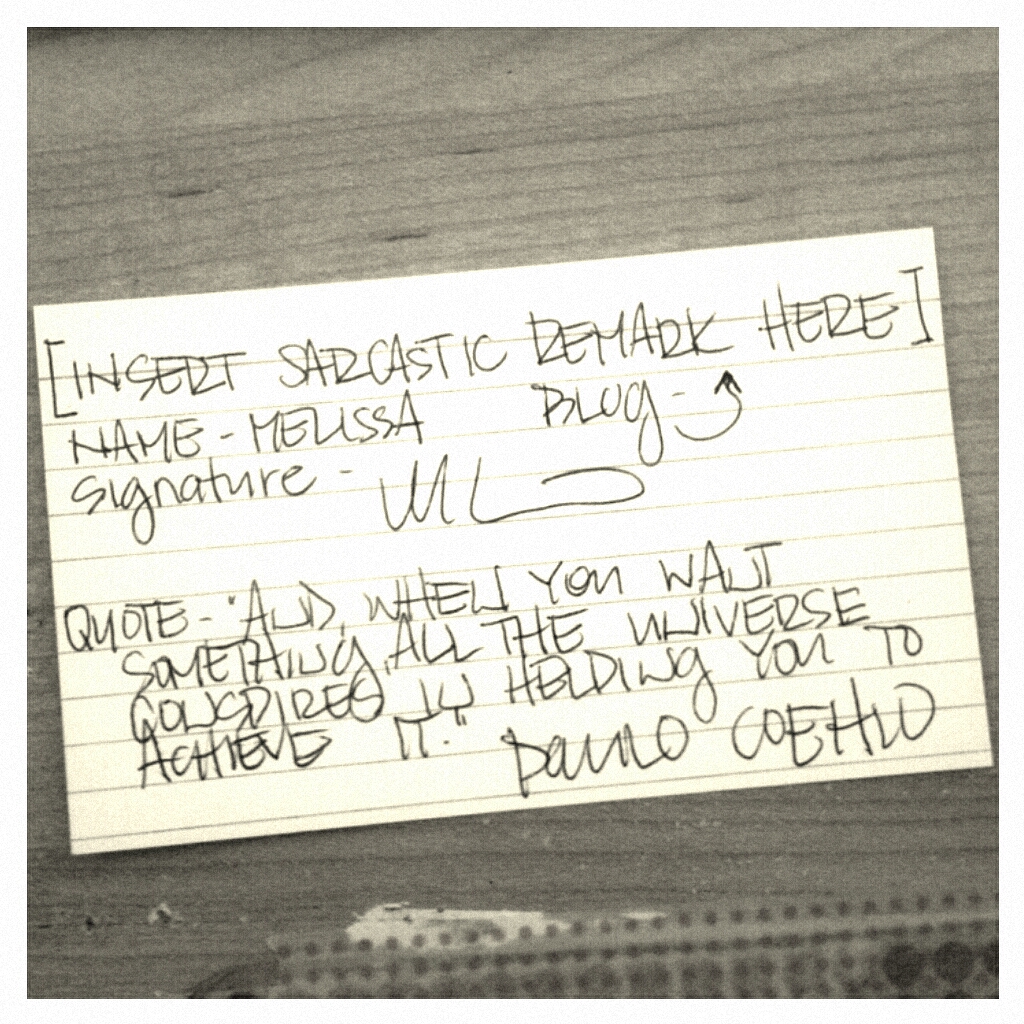 [INSERT SARCASTIC REMARK HERE]
NAME - MELISSA BLOG -
Signature -
QUOTE - "AND, WHEN YOU WANT
SOMETHING, ALL THE UNIVERSE
CONSPIRES IN HELPING YOU TO
ACHIEVE IT." PAULO COEHLO